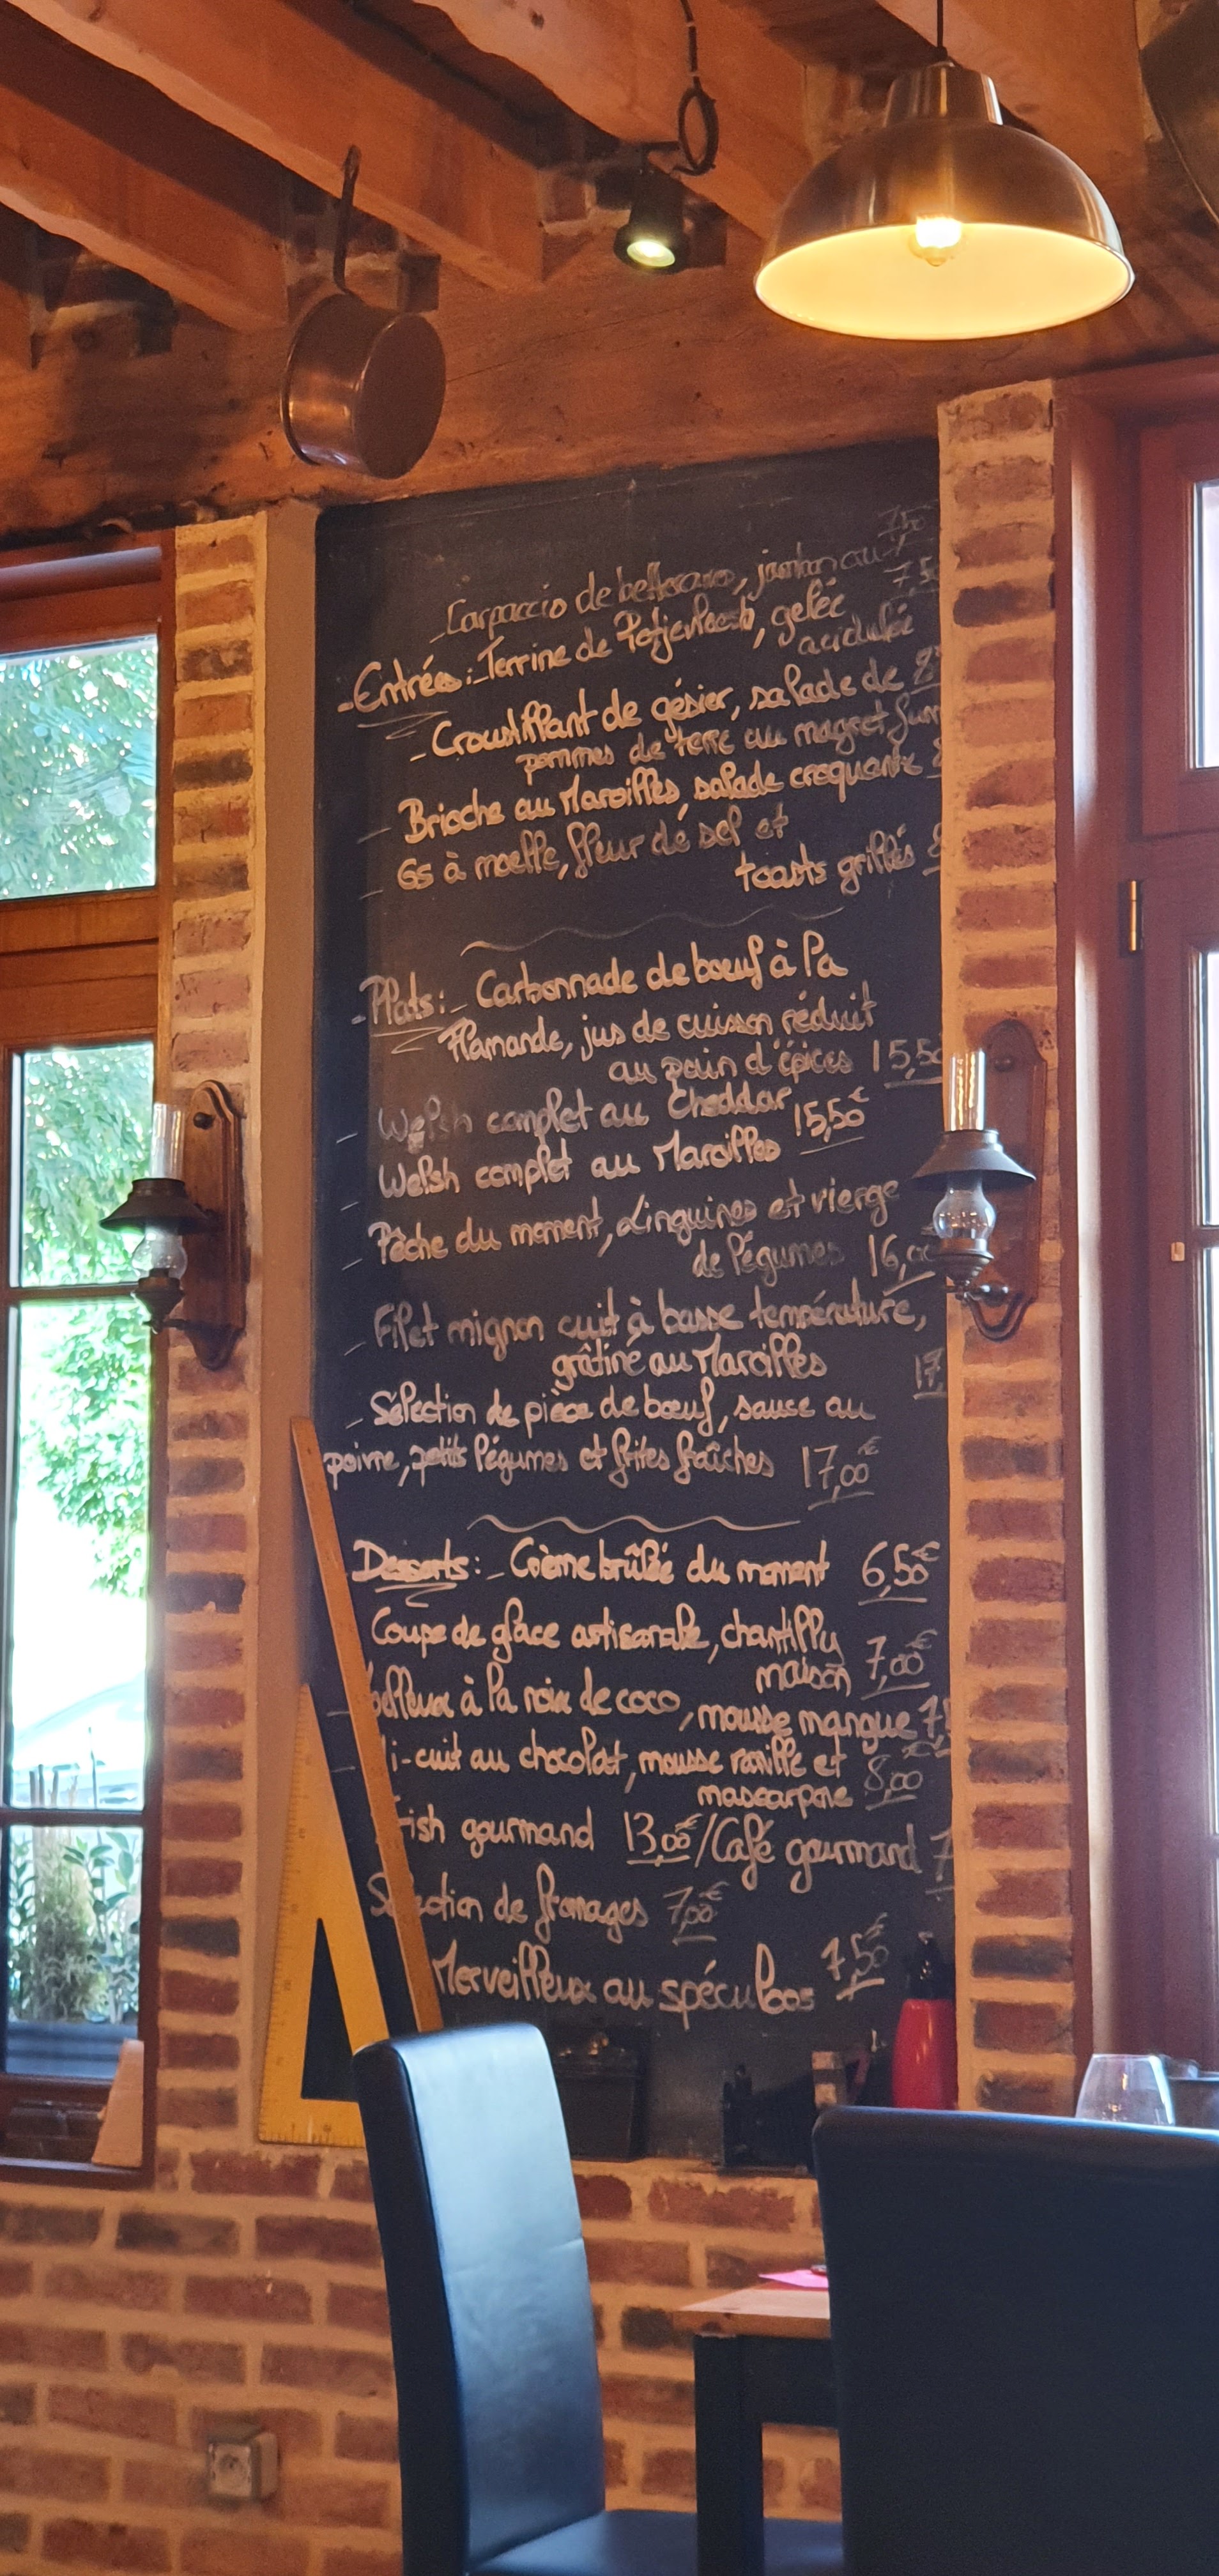 7,50
- Carpaccio de betterave, jambon
7,50
- Entrées : - Terrine de Potjevleesch, gelée
acidulée
- Croustillant de gésier, salade de 8
pommes de terre au magret fum
- Brioche au Maroilles, salade croquante
- Os à moelle, fleur de sel et
toasts grillés
- Plats : - Carbonnade de bœuf à la
flamande, jus de cuisson réduit
au pain d'épices 15,50
- Welsh complet au Cheddar 15,50€
- Welsh complet au Maroilles
- Pêche du moment, Linguines et vierge
de légumes 16,00
- Filet mignon cuit à basse température,
grâtiné au Maroilles 17,
- Sélection de pièce de bœuf, sauce au
poivre, petits légumes et frites fraîches 17,00€
Desserts : - Crème brûlée du moment 6,50€
Coupe de glace artisanale, chantilly
maison 7,00€
- oelleux à la noix de coco, mousse mangue 7,
i-cuit au chocolat, mousse vanille et
mascarpone 8,00€
rish gourmand 13,00€ / Café gourmand 7
Sélection de fromages 7,00€
Merveilleux au spéculoos 7,50€